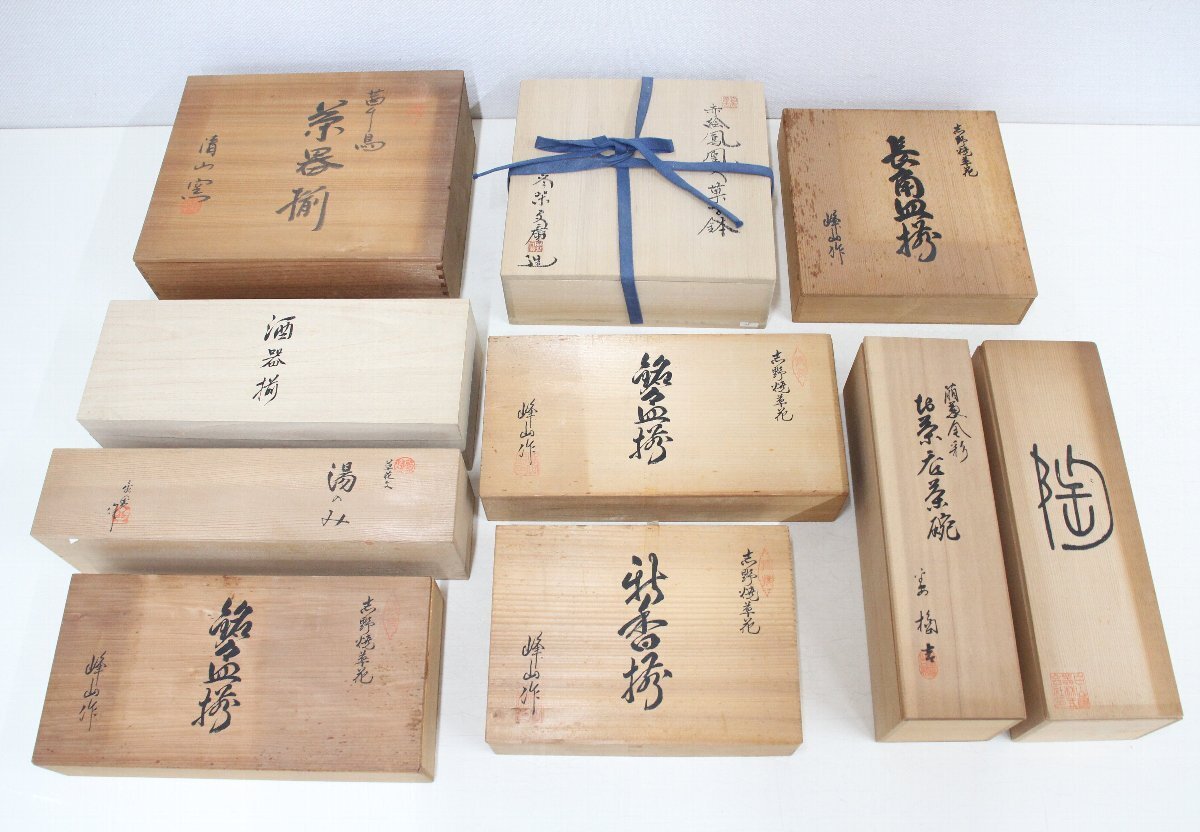 茶器揃
清山窯
赤絵鳳凰文菓子鉢
造
志野焼草花
長角皿揃
峰山作
酒器揃
志野焼草花
銘々皿揃
峰山作
金彩
お茶呑茶碗
陶
湯のみ
作
志野焼草花
銘々皿揃
峰山作
志野焼草花
新香揃
峰山作